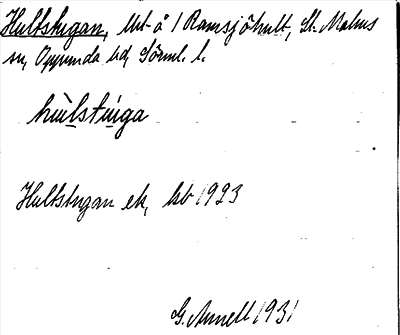 Hultstugan, lht å 1 Ramsjöhult, St. Malms
sn, Oppunda hd, Sörml. l.
hùlstúga
Hultstugan ek, kb 1923
G. Annell 1931